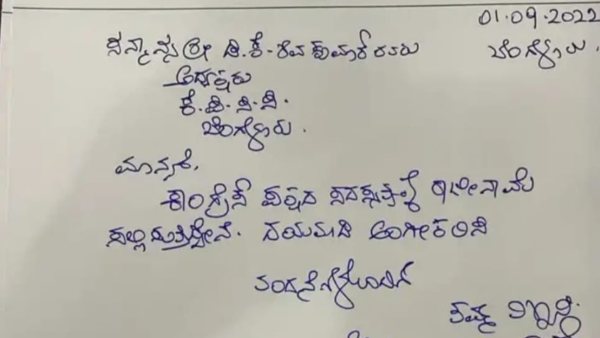 01.09.2022
ಸನ್ಮಾನ್ಯ ಶ್ರೀ ಡಿ.ಕೆ. ಶಿವಕುಮಾರ್ ರವರು ಬೆಂಗಳೂರು
ಅಧ್ಯಕ್ಷರು
ಕೆ.ಪಿ.ಸಿ.ಸಿ.
ಬೆಂಗಳೂರು.
ಮಾನ್ಯರೆ,
ಕಾಂಗ್ರೆಸ್ ಪಕ್ಷದ ಸದಸ್ಯತ್ವಕ್ಕೆ ರಾಜೀನಾಮೆ
ಸಲ್ಲಿಸುತ್ತಿದ್ದೇನೆ. ದಯಮಾಡಿ ಅಂಗೀಕರಿಸಿ
ವಂದನೆಗಳೊಂದಿಗೆ
ತಮ್ಮ ವಿಶ್ವಾಸಿ